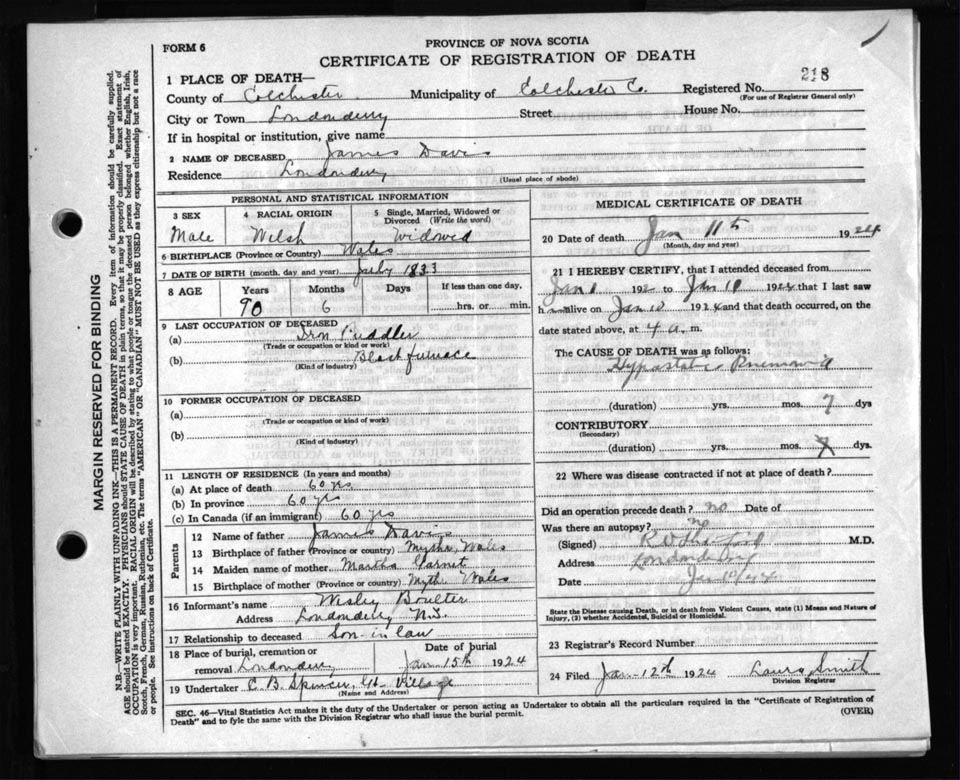 FORM 6
PROVINCE OF NOVA SCOTIA
CERTIFICATE OF REGISTRATION OF DEATH
1 PLACE OF DEATH—
218
County of Colchester Municipality of Colchester Co. Registered No.
(For use of Registrar General only)
City or Town Londonderry Street House No.
If in hospital or institution, give name
2 NAME OF DECEASED James Davis
Residence Londonderry
(Usual place of abode)
PERSONAL AND STATISTICAL INFORMATION
3 SEX 4 RACIAL ORIGIN 5 Single, Married, Widowed or Divorced (Write the word)
Male Welsh Widowed
6 BIRTHPLACE (Province or Country) Wales
7 DATE OF BIRTH (month, day and year) July 1833
8 AGE Years Months Days If less than one day,
90 6 hrs. or min.
9 LAST OCCUPATION OF DECEASED
(a) Iron Puddler
(Trade or occupation or kind or work)
(b) Blast furnace
(Kind of industry)
10 FORMER OCCUPATION OF DECEASED
(a)
(Trade or occupation or kind of work)
(b)
(Kind of industry)
11 LENGTH OF RESIDENCE (In years and months)
(a) At place of death 60 yrs
(b) In province 60 yrs
(c) In Canada (if an immigrant) 60 yrs
Parents
12 Name of father James Davis
13 Birthplace of father (Province or country) Myths, Wales
14 Maiden name of mother Martha Garnet
15 Birthplace of mother (Province or country) Myth Wales
16 Informant's name Wesley Boulter
Address Londonderry N.S.
17 Relationship to deceased Son-in law
18 Place of burial, cremation or removal Londonderry Date of burial Jan 15th 1924
19 Undertaker C. B. Spencer, Gt. Village
(Name and Address)
MEDICAL CERTIFICATE OF DEATH
20 Date of death Jan 11th 1924
(Month, day and year)
21 I HEREBY CERTIFY, that I attended deceased from
Jan 1 192 to Jan 10 1924 that I last saw
h im alive on Jan 10 1924 and that death occurred, on the
date stated above, at 4 a. m.
The CAUSE OF DEATH was as follows:
Hypostatic Pneumonia
(duration) yrs. mos. 7 dys
CONTRIBUTORY
(Secondary)
(duration) yrs. mos. dys.
22 Where was disease contracted if not at place of death?
Did an operation precede death? no Date of
Was there an autopsy? no
(Signed) M.D.
Address Londonderry
Date
State the Disease causing Death, or in death from Violent Causes, state (1) Means and Nature of Injury, (2) whether Accidental, Suicidal or Homicidal.
23 Registrar's Record Number
24 Filed Jan-12th 1924 Laura Smith
Division Registrar
SEC. 46—Vital Statistics Act makes it the duty of the Undertaker or person acting as Undertaker to obtain all the particulars required in the "Certificate of Registration of
Death" and to fyle the same with the Division Registrar who shall issue the burial permit. (OVER)
MARGIN RESERVED FOR BINDING
N.B.—WRITE PLAINLY WITH UNFADING INK—THIS IS A PERMANENT RECORD. Every item of information should be carefully supplied.
AGE should be stated EXACTLY. PHYSICIANS should STATE CAUSE OF DEATH in plain terms, so that it may be properly classified. Exact statement of
OCCUPATION is very important. RACIAL ORIGIN will be described by stating to what people or tongue the deceased person belonged whether English, Irish,
Scotch, French, German, Russian, Ruthenian, etc. The terms "AMERICAN" OR "CANADIAN" MUST NOT BE USED as they express citizenship but not a race
or people. See instructions on back of Certificate.